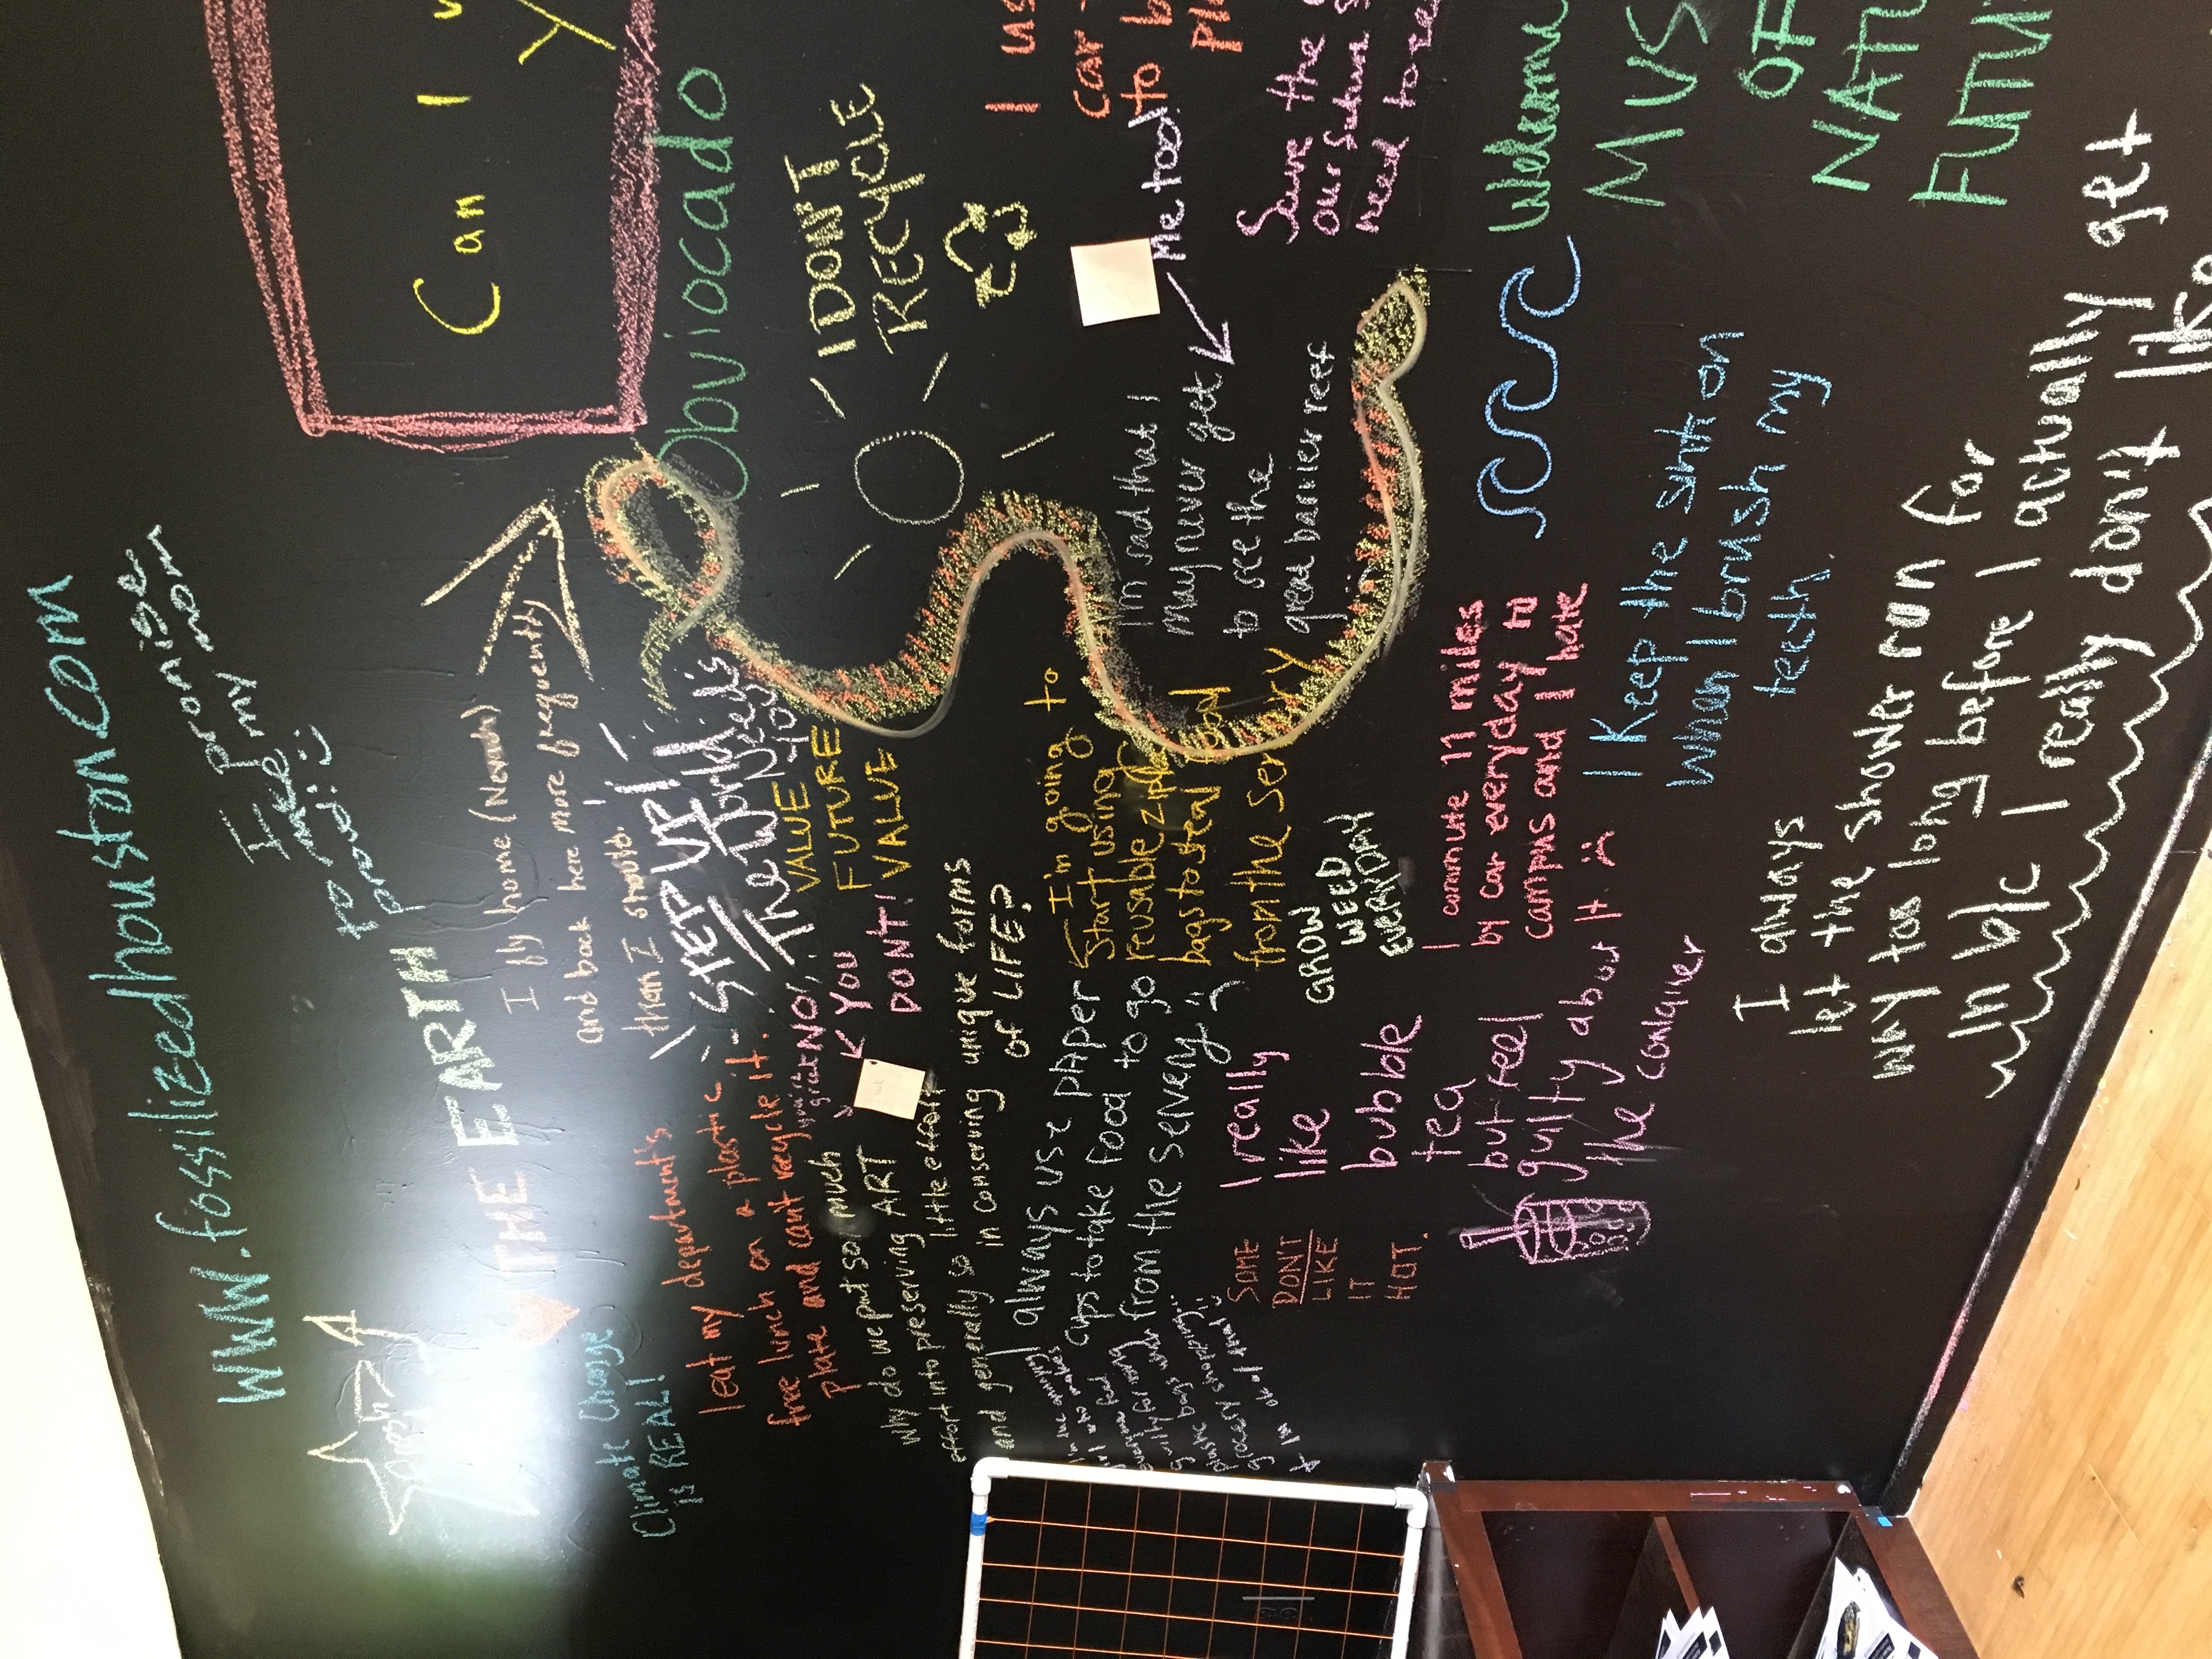 www.fossilizedhouston.com
I promise
I my mom
to
proud :)
THE EARTH
I fly home (Nevada)
and back here more frequently
than I should.
Climate Change
is REAL!
STEP UP!
The World's
Can I
y
Obviocado
I DON'T
RECYCLE
I eat my department's
free lunch on a plastic
plate and can't recycle it.
VALUE
FUTURE
VALUE
NO!
YOU
DON'T!
Why do we put so much
effort into preserving ART
and generally so little effort
in conserving unique forms
of LIFE?
I'm going to
start using
reusable
bags to steal food
from the servery
I always use paper
cups to take food to go
from the servery :(
plastic bags
grocery shopping
Me too!
I'm sad that I
may never get
to see the
great barrier reef
I us
car
to b
pl
Save the
our future
need to
GROW
WEED
EVERYDAY
SOME
DON'T
LIKE
IT
HOT.
I really
like
bubble
tea
but feel
guilty about
the container
I commute 17 miles
by car everyday to
campus and I hate
it :(
Welcome
MUS
OF
NATU
FUTU
I keep the sink on
when I brush my
teeth
I always
let the shower run for
way too long before I actually get
in b/c I really don't like